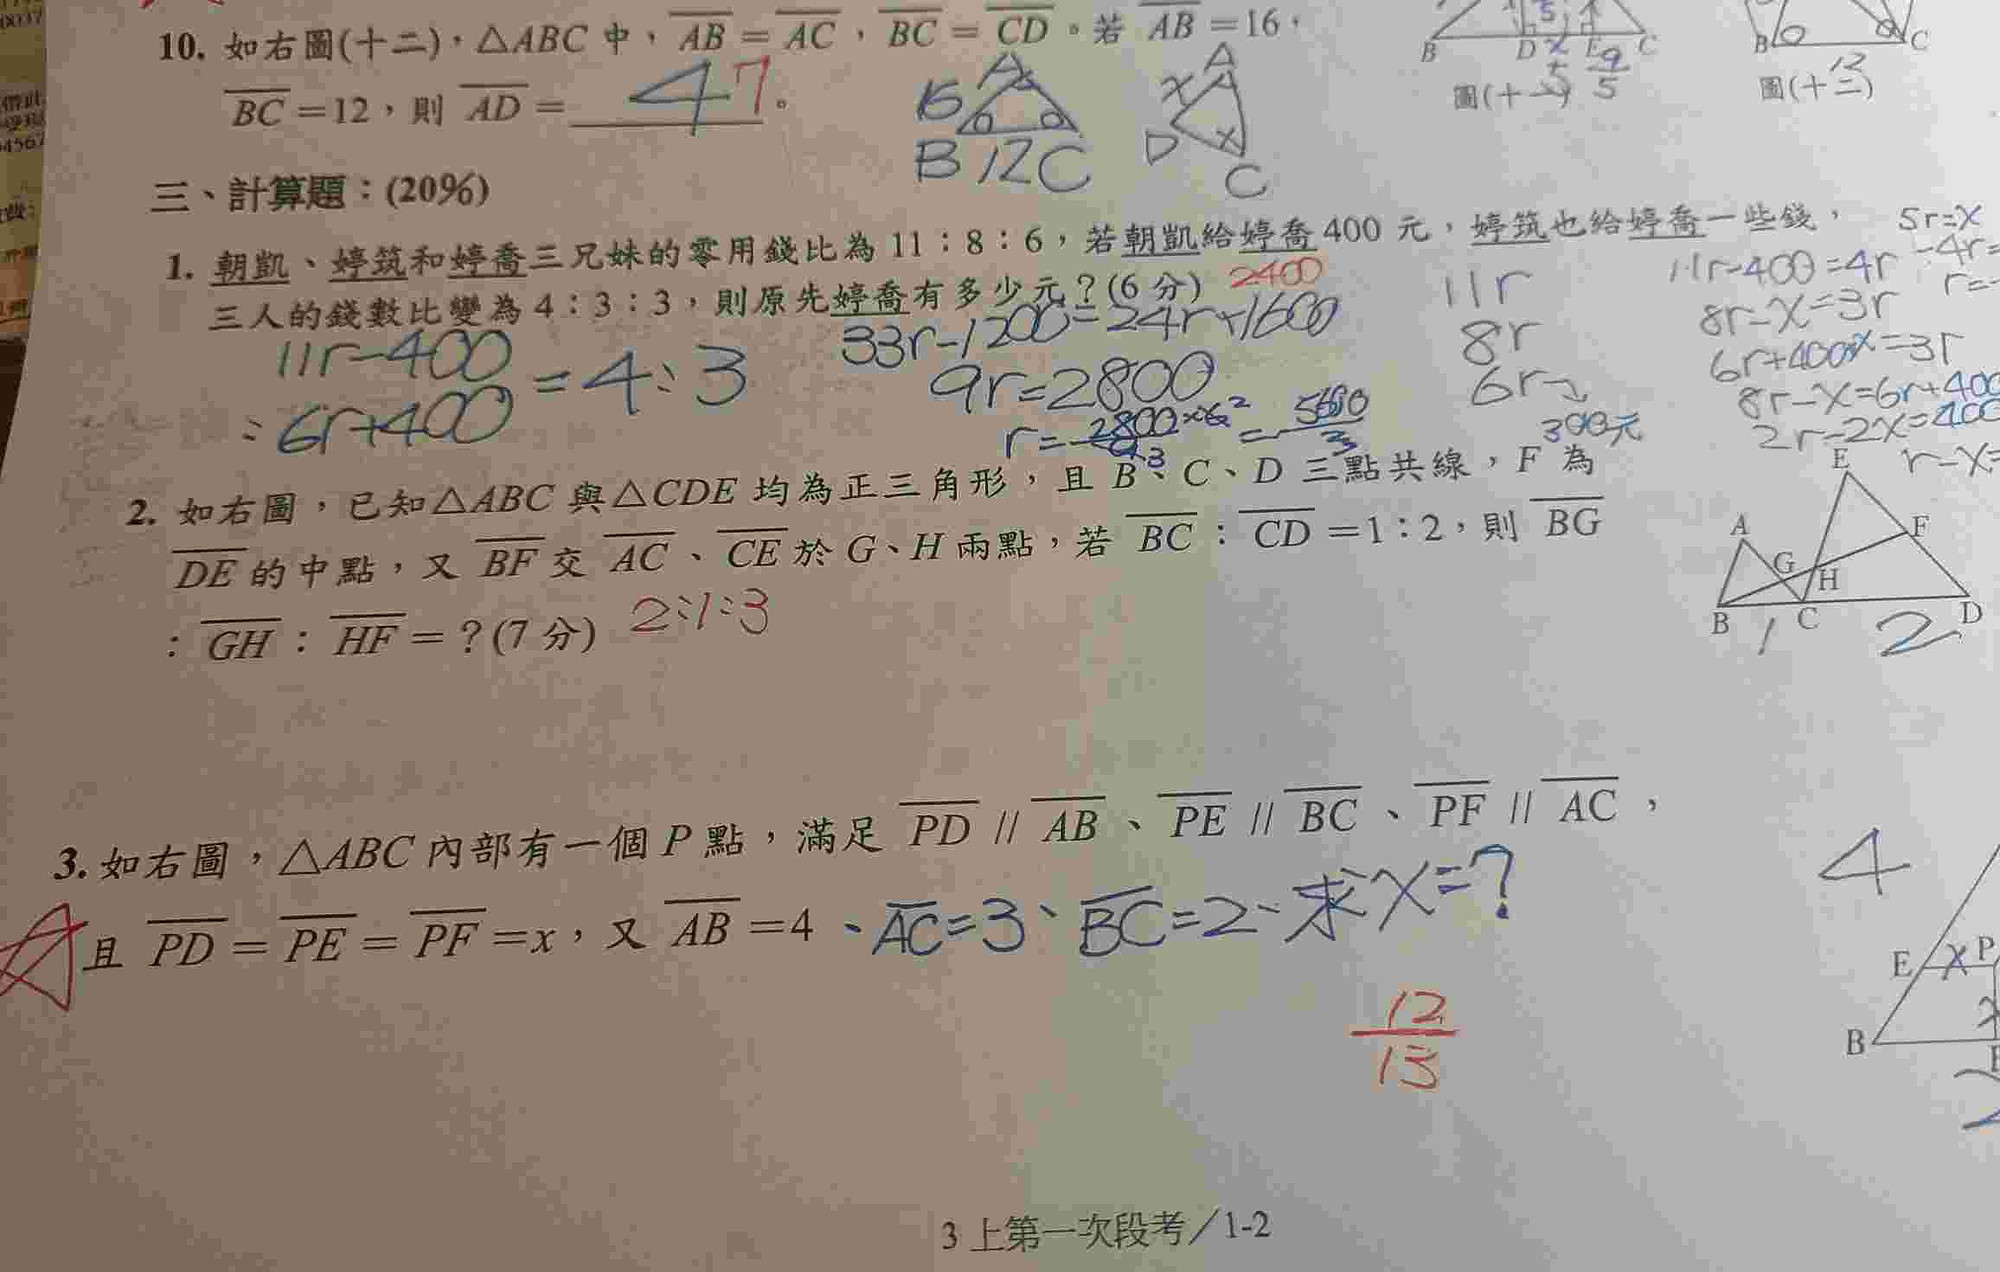 10. 如右圖(十二)，△ABC 中，AB = AC，BC = CD。若 AB =16，
BC =12，則 AD = 47。
16 A
B 12 C
x A
D x
C
B D E C
9
5
圖(十一)
B C
12
圖(十二)
三、計算題：(20%)
1. 朝凱、婷筑和婷喬三兄妹的零用錢比為 11：8：6，若朝凱給婷喬 400 元，婷筑也給婷喬一些錢，
三人的錢數比變為 4：3：3，則原先婷喬有多少元？(6 分) 2400
11r-400
：6r+400 = 4：3
33r-1200=24r+1600
9r=2800
11r
8r
6r
300元
5r=x
11r-400=4r
8r-x=3r
6r+400+x=3r
8r-x=6r+400
2r-2x=400
r-x=
2. 如右圖，已知△ABC 與△CDE 均為正三角形，且 B、C、D 三點共線，F 為
DE 的中點，又 BF 交 AC、CE 於 G、H 兩點，若 BC：CD =1：2，則 BG
：GH：HF =？(7 分) 2:1:3
E
A F
G H
B C D
1 2
3. 如右圖，△ABC 內部有一個 P 點，滿足 PD // AB、PE // BC、PF // AC，
且 PD = PE = PF =x，又 AB =4、AC=3、BC=2、求x=?
12
13
4
E x P
B
3 上第一次段考／1-2